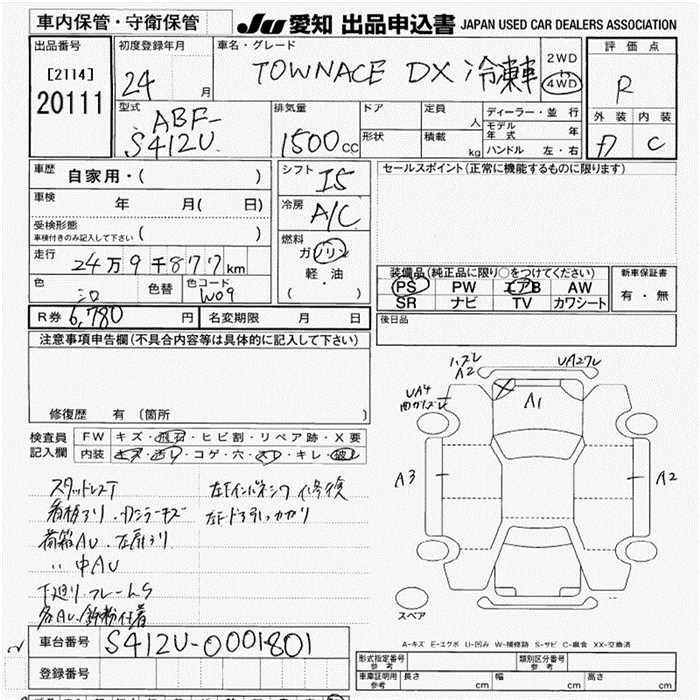 車内保管・守衛保管 JU 愛知 出品申込書 JAPAN USED CAR DEALERS ASSOCIATION
出品番号
[2114]
20111
初度登録年月
24 月
車名・グレード
TOWNACE DX 冷凍車
2WD
4WD
評価点
R
外装 内装
C
型式
ABF-
S412U
排気量
1500cc
ドア
形状
定員
人
積載
kg
ディーラー・並行
モデル年式 年
ハンドル 左・右
車歴 自家用・( )
車検 年 月( 日)
受検形態
車検付きのみ記入して下さい ( )
走行
24万9千877km
色
シロ
色替
色コード
W09
シフト
I5
冷房
A/C
燃料
ガソリン
軽・油
( )
セールスポイント(正常に機能するものに限ります)
装備品(純正品に限り○をつけてください)
PS PW エアB AW
SR ナビ TV カワシート
新車保証書
有・無
R券 6,780 円 名変期限 月 日
後日品
注意事項申告欄(不具合内容等は具体的に記入して下さい)
修復歴 有 〔箇所
検査員
記入欄
FW キズ・飛石・ヒビ割・リペア跡・X要
内装 キズ・汚レ・コゲ・穴・スレ・キレ・破レ
スタッドレスT
左インパネシワ 修復
荷箱AU
〃 中AU
下廻り フレームS
各AU 鉄粉付着
ハズレ
A2
UA27レ
UA4
A1
A3
A2
スペア
A-キズ E-エクボ U-凹み W-補修跡 S-サビ C-腐食 XX-交換済
車台番号 S412U-0001801
登録番号
形式指定番号
参考
類別区分番号
参考
車庫証明用
参考
長さ cm 幅 cm 高さ cm